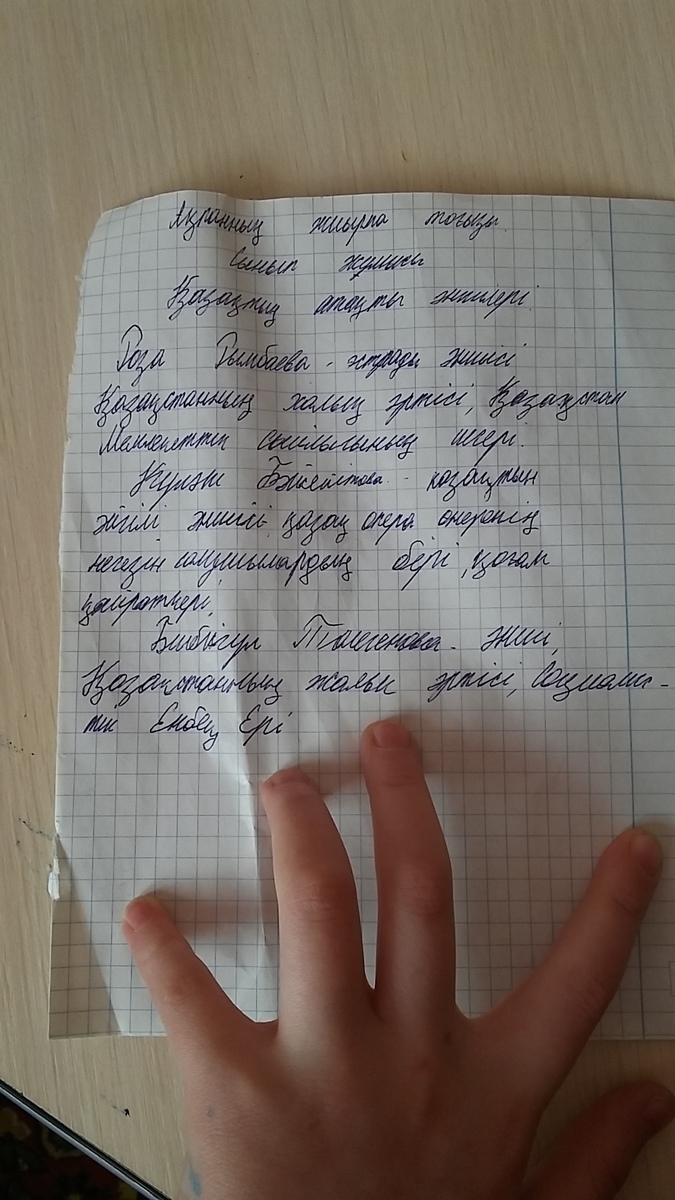 Ақпанның жиырма тоғызы
Сынып жұмысы
Қазақтың атақты әншілері
Роза Рымбаева - эстрада әншісі
Қазақстанның халық әртісі, Қазақстан
Мемлекеттік сыйлығының игері.
Күләш Байсейітова - қазақтын
әйгілі әншісі, қазақ опера өнерінің
негезін салушылардың бері, қоғам
қайраткері,
Бибігүл Төлегенова - әнші,
Қазақстанның халық әртісі, Социалис-
тік Еңбек Ері